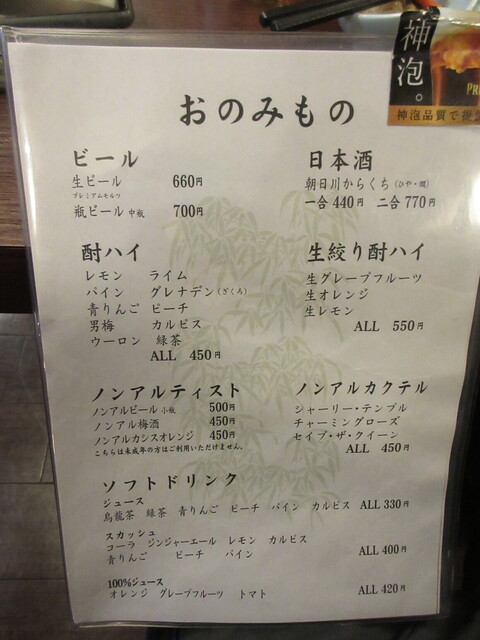 神泡。
PR
神泡品質で
おのみもの
ビール
生ビール 660円
プレミアムモルツ
瓶ビール 中瓶 700円
日本酒
朝日川からくち(ひや・燗)
一合 440円 二合 770円
酎ハイ
レモン ライム
パイン グレナデン(ざくろ)
青りんご ピーチ
男梅 カルピス
ウーロン 緑茶
ALL 450円
生絞り酎ハイ
生グレープフルーツ
生オレンジ
生レモン
ALL 550円
ノンアルティスト
ノンアルビール 小瓶 500円
ノンアル梅酒 450円
ノンアルカシスオレンジ 450円
こちらは未成年の方はご利用いただけません。
ノンアルカクテル
シャーリー・テンプル
チャーミングローズ
セイブ・ザ・クイーン
ALL 450円
ソフトドリンク
ジュース
烏龍茶 緑茶 青りんご ピーチ パイン カルピス ALL 330円
スカッシュ
コーラ ジンジャーエール レモン カルピス
青りんご ピーチ パイン ALL 400円
100%ジュース
オレンジ グレープフルーツ トマト ALL 420円